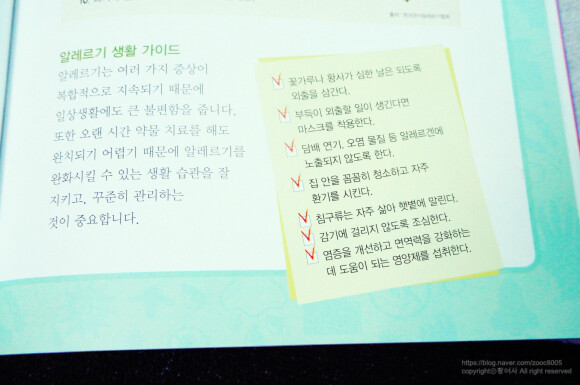 알레르기 생활 가이드
알레르기는 여러 가지 증상이
복합적으로 지속되기 때문에
일상생활에도 큰 불편함을 줍니다.
또한 오랜 시간 약물 치료를 해도
완치되기 어렵기 때문에 알레르기를
완화시킬 수 있는 생활 습관을 잘
지키고, 꾸준히 관리하는
것이 중요합니다.
꽃가루나 황사가 심한 날은 되도록
외출을 삼간다.
부득이 외출할 일이 생긴다면
마스크를 착용한다.
담배 연기, 오염 물질 등 알레르겐에
노출되지 않도록 한다.
집 안을 꼼꼼히 청소하고 자주
환기를 시킨다.
침구류는 자주 삶아 햇볕에 말린다.
감기에 걸리지 않도록 조심한다.
염증을 개선하고 면역력을 강화하는
데 도움이 되는 영양제를 섭취한다.
https://blog.naver.com/zooc8005
copyright©황여사 All right reserved